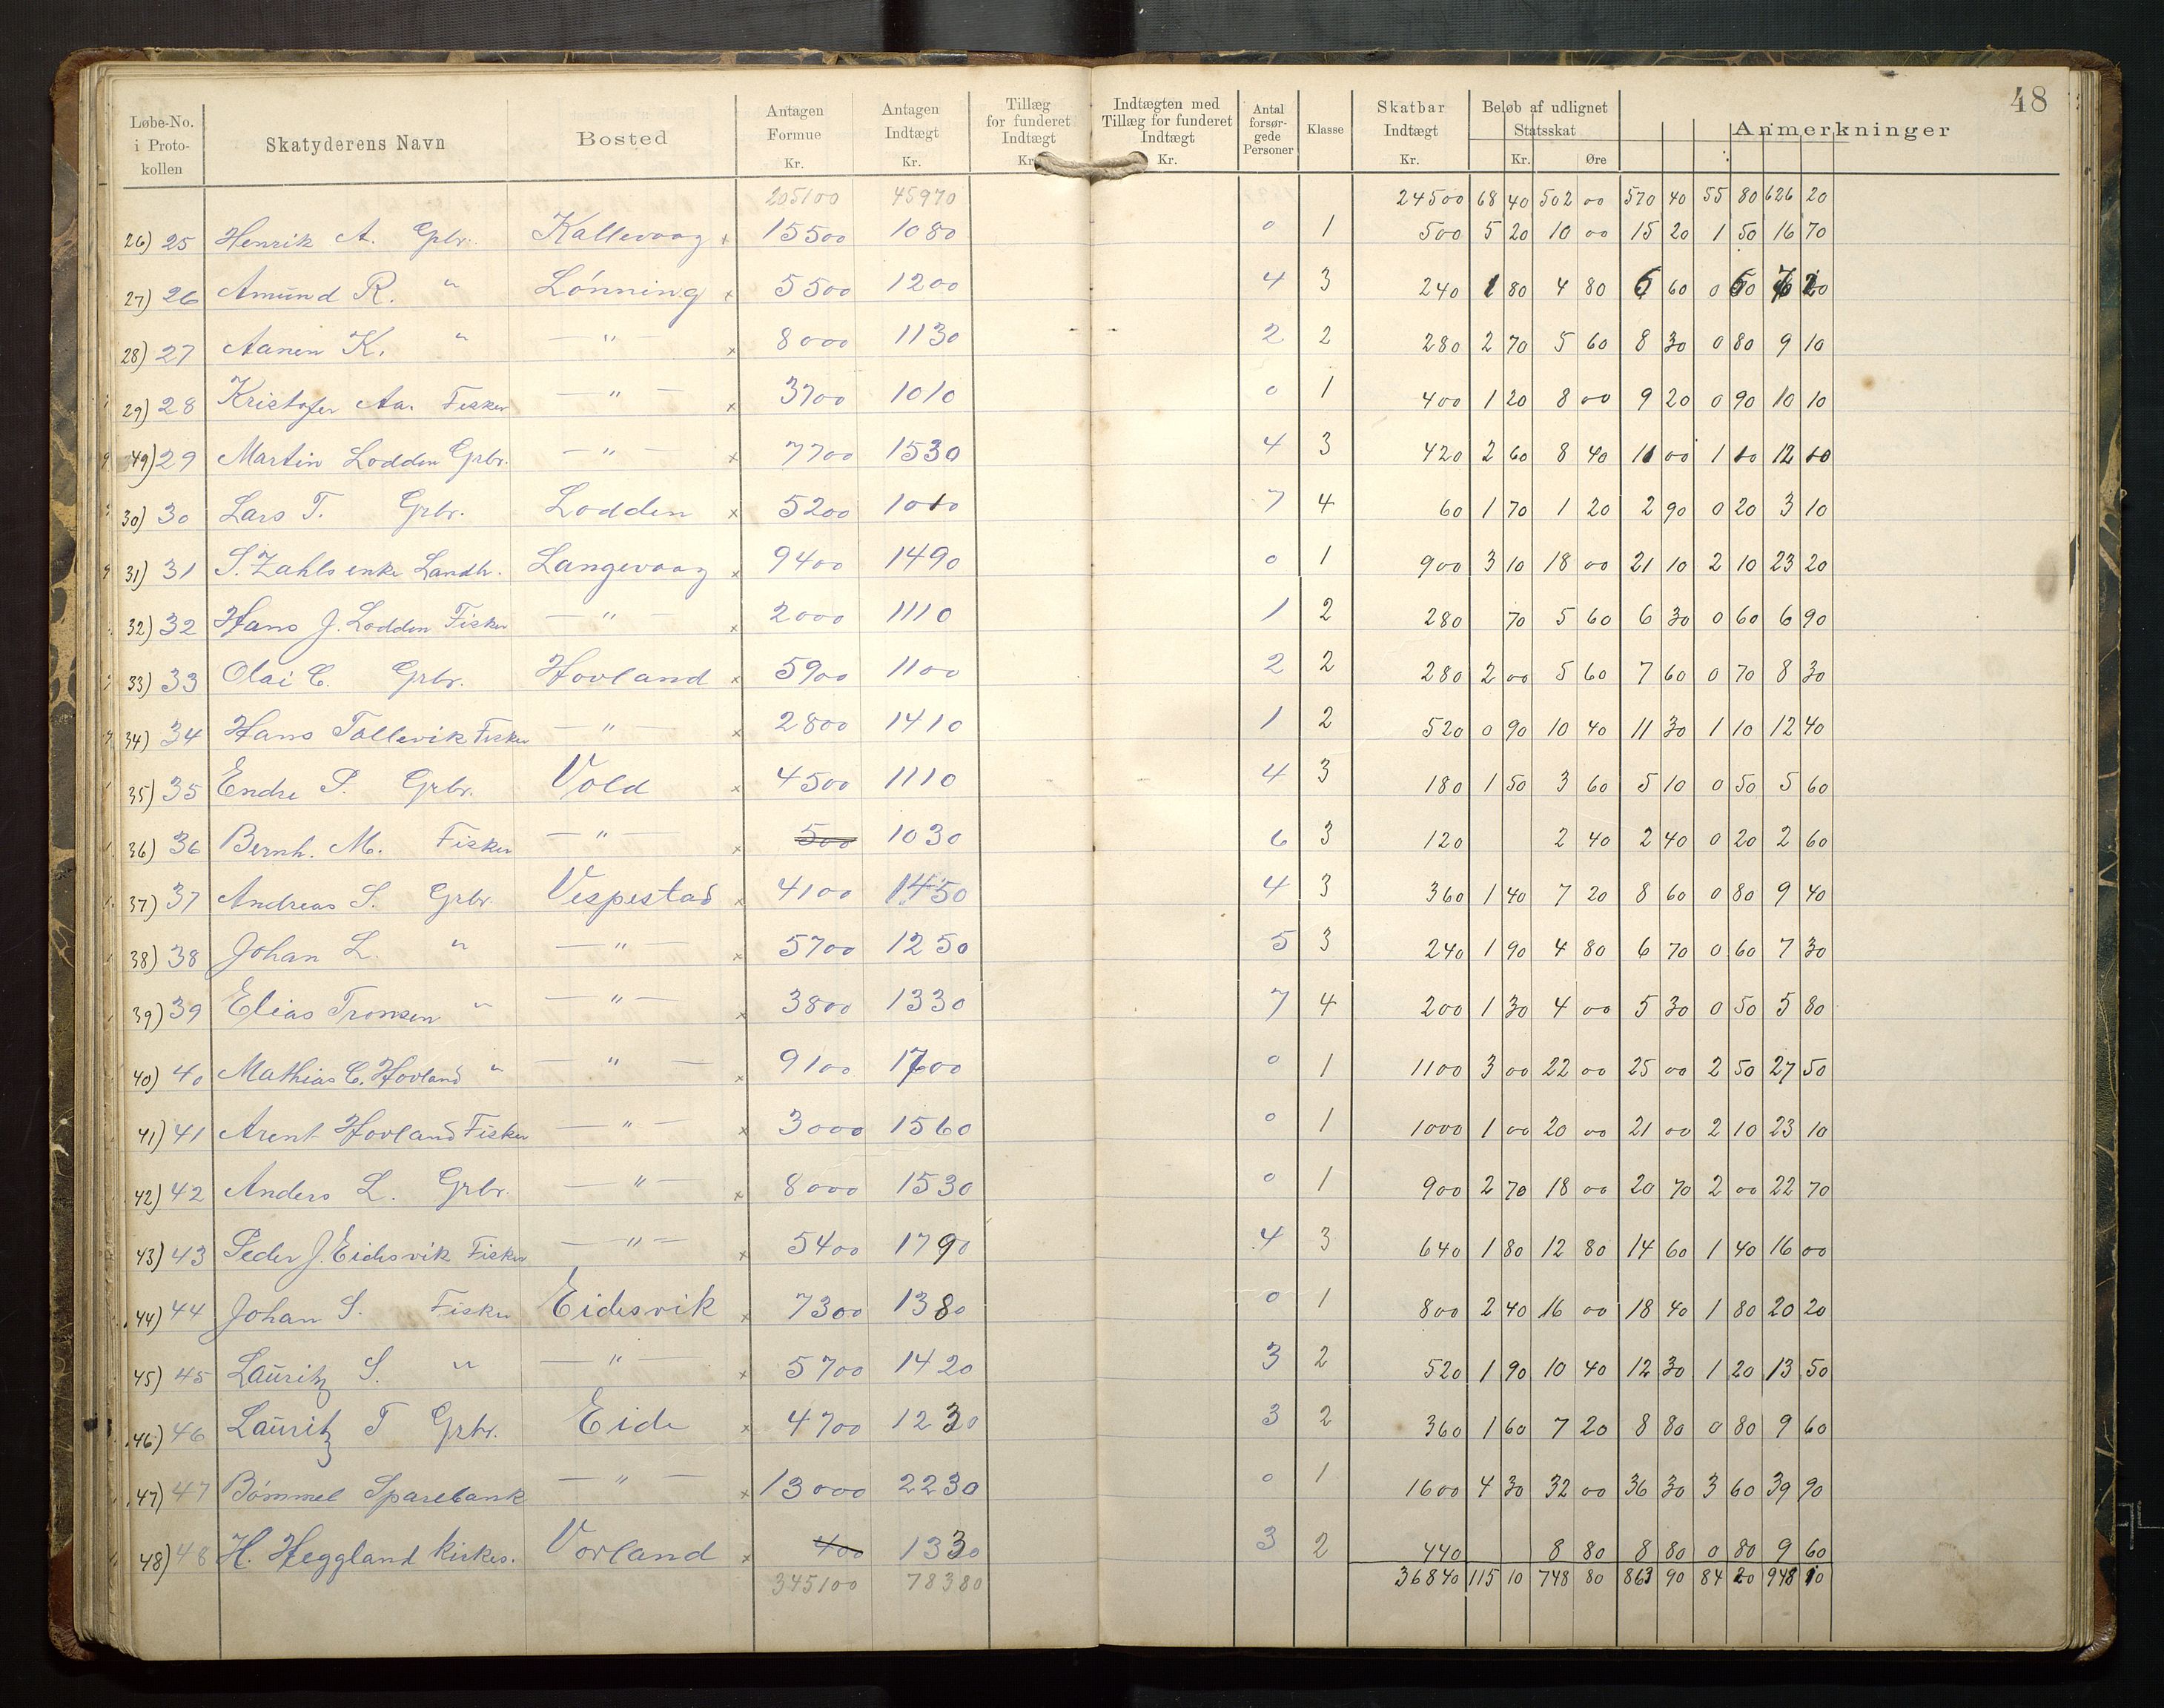 48
Løbe-No. i Proto-kollen | Skatyderens Navn | Bosted | Antagen Formue Kr. | Antagen Indtægt Kr. | Tillæg for funderet Indtægt Kr. | Indtægten med Tillæg for funderet Indtægt Kr. | Antal forsør-gede Personer | Klasse | Skatbar Indtægt Kr. | Beløb af udlignet Statsskat Kr. Øre | Anmerkninger
205100 45970 24500 68 40 502 00 570 40 55 80 626 20
26) 25 Henrik A. Gbr. Kallevaag x 15500 1080 0 1 500 5 20 10 00 15 20 1 50 16 70
27) 26 Amund R. " Lønning x 5500 1200 4 3 240 1 80 4 80 6 60 0 60 7 20
28) 27 Aanen K. " — " — x 8000 1130 2 2 280 2 70 5 60 8 30 0 80 9 10
29) 28 Kristofer Aa. Fisker — " — x 3700 1010 0 1 400 1 20 8 00 9 20 0 90 10 10
49) 29 Martin Lodden Grbr. — " — x 7700 1530 4 3 420 2 60 8 40 11 00 1 10 12 10
30) 30 Lars T. Grbr. Lodden x 5200 1010 7 4 60 1 70 1 20 2 90 0 20 3 10
31) 31 S. Zahls enke Landh. Langevaag x 9400 1490 0 1 900 3 10 18 00 21 10 2 10 23 20
32) 32 Hans J. Lodden Fisker — " — x 2000 1110 1 2 280 70 5 60 6 30 0 60 6 90
33) 33 Olai C. Grbr. Hovland x 5900 1100 2 2 280 2 00 5 60 7 60 0 70 8 30
34) 34 Hans Tollevik Fisker — " — x 2800 1410 1 2 520 0 90 10 40 11 30 1 10 12 40
35) 35 Endre P. Grbr. Vold x 4500 1110 4 3 180 1 50 3 60 5 10 0 50 5 60
36) 36 Bernh. M. Fisker — " — x 500 1030 6 3 120 2 40 2 40 0 20 2 60
37) 37 Andreas S. Grbr. Vespestad x 4100 1450 4 3 360 1 40 7 20 8 60 0 80 9 40
38) 38 Johan L. " — " — x 5700 1250 5 3 240 1 90 4 80 6 70 0 60 7 30
39) 39 Elias Tronsen " — " — x 3800 1330 7 4 200 1 30 4 00 5 30 0 50 5 80
40) 40 Mathias C. Hovland " — " — x 9100 1700 0 1 1100 3 00 22 00 25 00 2 50 27 50
41) 41 Arent Hovland Fisker — " — x 3000 1560 0 1 1000 1 00 20 00 21 00 2 10 23 10
42) 42 Anders L. Grbr. — " — x 8000 1530 0 1 900 2 70 18 00 20 70 2 00 22 70
43) 43 Peder J. Eidesvik Fisker — " — x 5400 1790 4 3 640 1 80 12 80 14 60 1 40 16 00
44) 44 Johan S. Fisker Eidesvik x 7300 1380 0 1 800 2 40 16 00 18 40 1 80 20 20
45) 45 Lauritz S. " — " — x 5700 1420 3 2 520 1 90 10 40 12 30 1 20 13 50
46) 46 Lauritz T Grbr. Eide x 4700 1230 3 2 360 1 60 7 20 8 80 0 80 9 60
47) 47 Bømmel Sparebank — " — x 13000 2230 0 1 1600 4 30 32 00 36 30 3 60 39 90
48) 48 H. Heggland kirkes. Vorland x 400 1330 3 2 440 8 80 8 80 0 80 9 60
345100 78380 36840 115 10 748 80 863 90 84 20 948 10